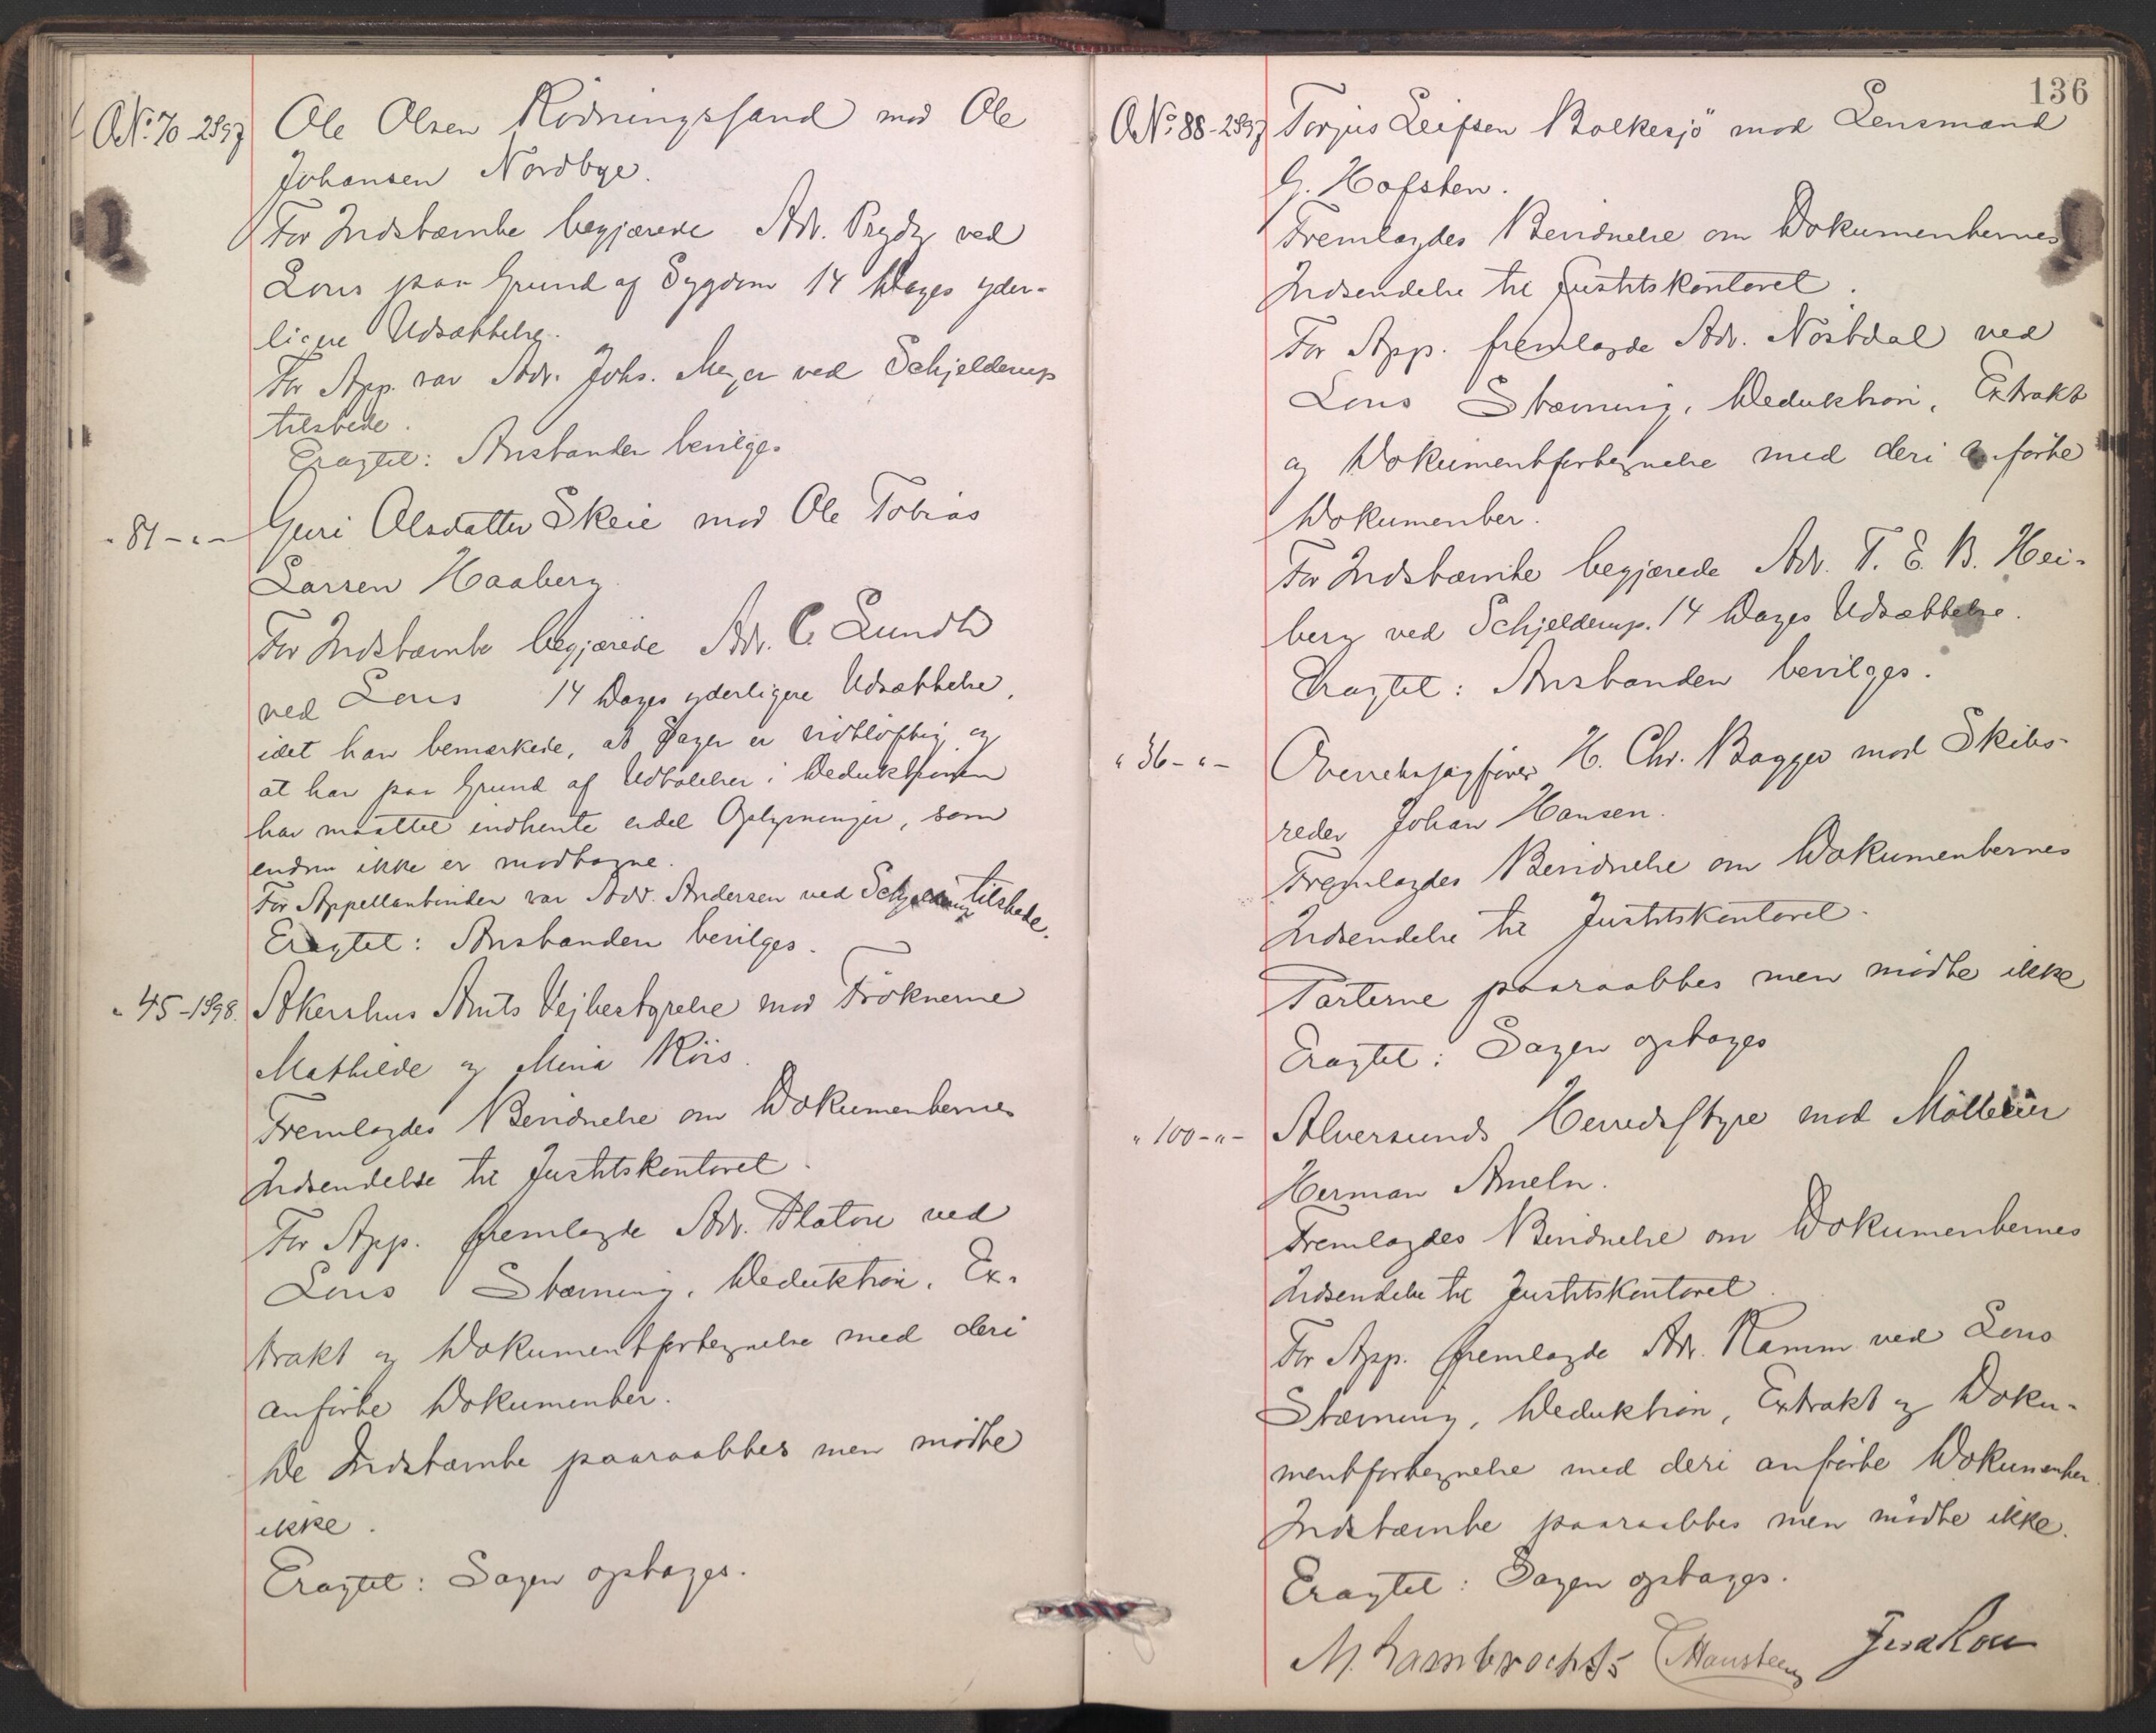 ANo. 70-2897 Ole Olsen Rödningssand mod Ole
Johansen Nordbye.
For Indstæmte begjærede Adv. Prydz ved
Lous paa Grund af Sygdom 14 Dages yder-
ligere Udsættelse.
For App. var Adv. Johs. Meyer ved Schjelderup
tilstede.
Eragtet: Anstanden bevilges
" 81 - " - Guri Olsdatter Skeie mod Ole Tobias
Larsen Haaberg
For Indstæmte begjærede Adv. C. Lundh
ved Lous 14 Dages yderligere Udsættelse,
idet han bemærkede, at Sagen er vidtløftig og
at han paa Grund af Udtalelser i Deduktionen
har maattet indhente endel Oplysninger, som
endnu ikke er modtagne.
For Appellantinden var Adv. Andersen ved Schjelderup tilstede.
Eragtet: Anstanden bevilges.
" 45-1898. Akershus Amts Vejbestyrelse mod Frøknerne
Mathilde og Mina Kiis.
Fremlagdes Bevidnelse om Dokumenternes
Indsendelse til Justitskontoret.
For App. fremlagde Adv. Platou ved
Lous Stævning, Deduktion, Ex-
trakt og Dokumentfortegnelse med deri
anførte Dokumenter.
De Indstæmte paaraabtes men mødte
ikke.
Eragtet: Sagen optages.
136
ANo. 88-2897 Torjus Leifsen Bolkesjö mod Lensmand
G. Hofsten.
Fremlagdes Bevidnelse om Dokumenternes
Indsendelse til Justitskontoret.
For App. fremlagde Adv. Nöstdal ved
Lous Stævning, Deduktion, Extrakt
og Dokumentfortegnelse med deri anførte
Dokumenter.
For Indstæmte begjærede Adv. T. E. B. Hei-
berg ved Schjelderup. 14 Dages Udsættelse.
Eragtet: Anstanden bevilges.
" 36 - " - Overretssagfører H. Chr. Bagger mod Skibs-
reder Johan Hansen.
Fremlagdes Bevidnelse om Dokumenternes
Indsendelse til Justitskontoret.
Parterne paaraabtes men mødte ikke
Eragtet: Sagen optages
" 100 - " - Alversunds Herredsstyre mod Mölleier
Herman Ameln.
Fremlagdes Bevidnelse om Dokumenternes
Indsendelse til Justitskontoret.
For App. fremlagde Adv. Kamm ved Lous
Stævning, Deduktion, Extrakt og Doku-
mentfortegnelse med deri anførte Dokumenter.
Indstæmte paaraabtes men mødte ikke.
Eragtet: Sagen optages.
M. Lambrechts CHansteen